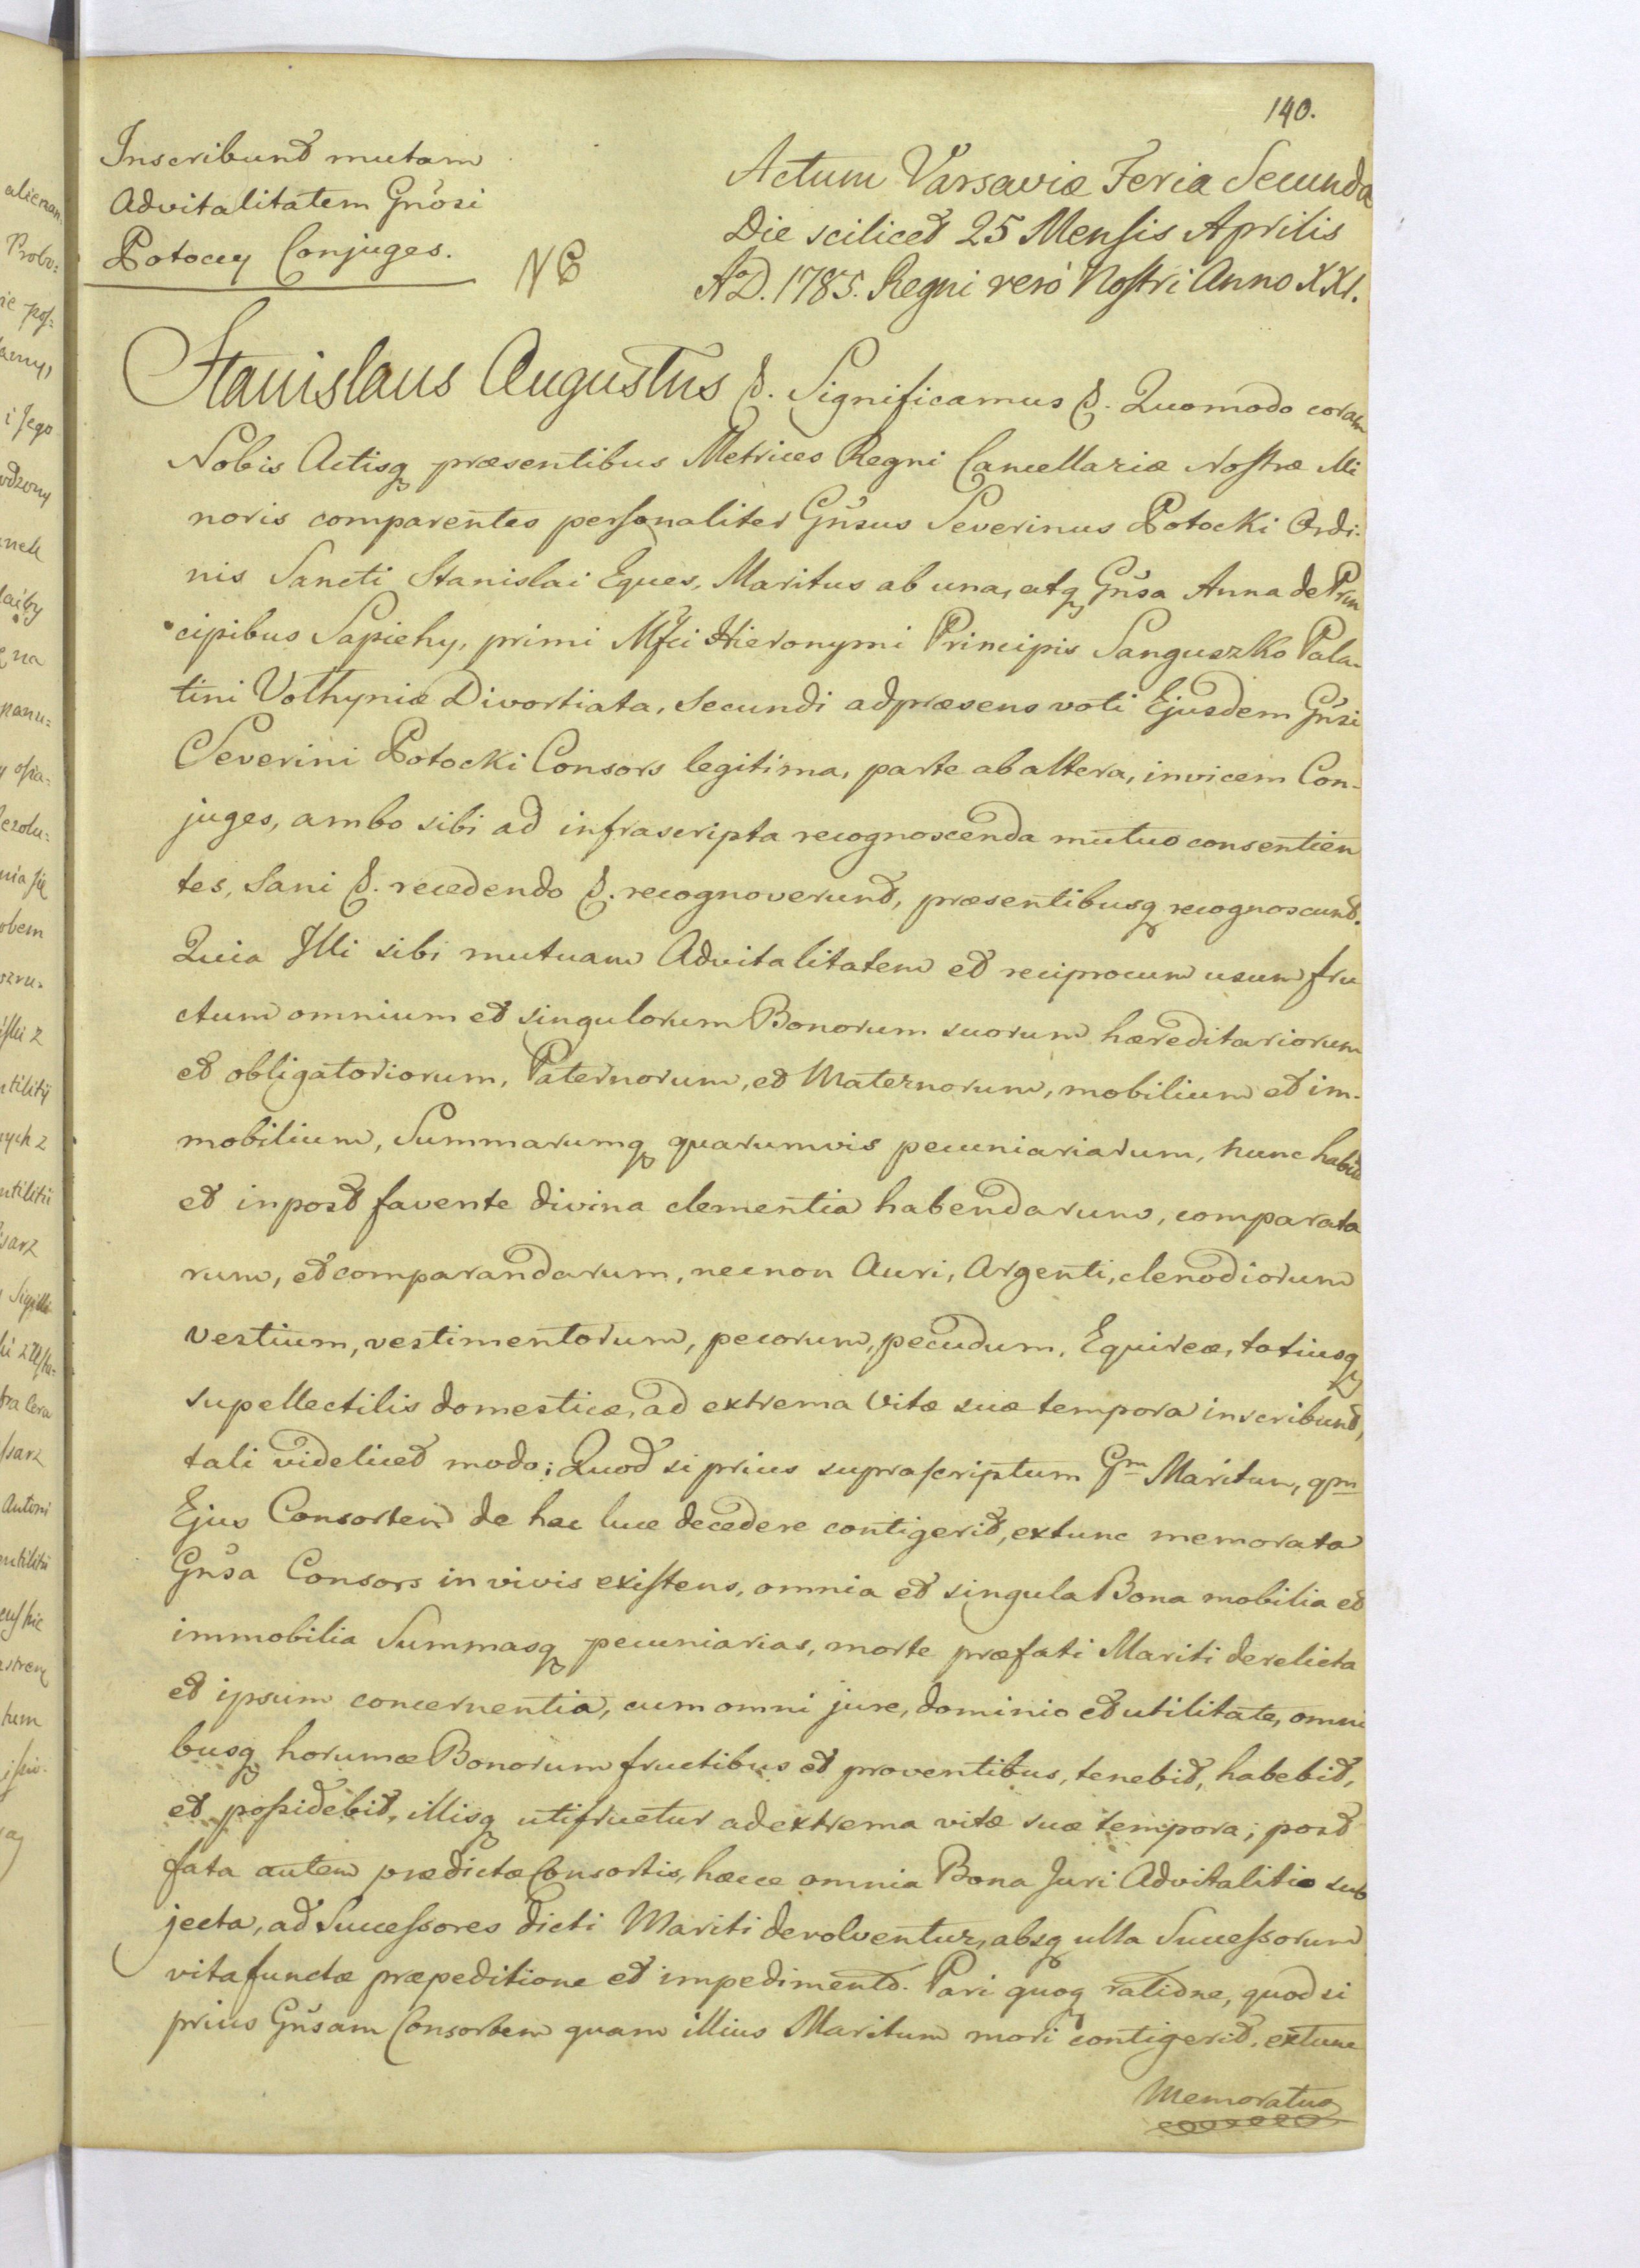 140.
Inscribunt mutam
Advitalitatem Gnosi
Potoccy Conjuges.
NB
Actum Varsaviæ Feria Secunda
Die scilicet 25 Mensis Aprilis
A.D. 1785. Regni verò Nostri Anno XXI.
Stanislaus Augustus &. Significamus &. Quomodo coram
Nobis Actisq præsentibus Metrices Regni Cancellariæ Nostræ Mi
noris comparentes personaliter Gnsus Severinus Potocki Ordi-
nis Sancti Stanislai Eques, Maritus ab una, atq Gnsa Anna de Prin
cipibus Sapiehy, primi Mfci Hieronymi Principis Sanguszko Pala-
tini Volhyniæ Divortiata, Secundi adpræsens voti Ejusdem Gnsi
Severini Potocki Consors legitima, parte ab altera, invicem Con-
juges, ambo sibi ad infrascripta recognoscenda mutuo consentien
tes, Sani &. recedendo &. recognoverunt, præsentibusq recognoscunt.
Quia Illi sibi mutuam Advitalitatem et reciprocum usum fru
ctum omnium et singulorum Bonorum suorum hæreditariorum
et obligatoriorum, Paternorum, et Maternorum, mobilium et im-
mobilium, Summarumq quarumvis pecuniariarum, nunc habit
et inpost favente divina clementia habendarum, comparata
rum, et comparandarum, necnon Auri, Argenti, clenodiorum
vestium, vestimentorum, pecorum, pecudum, Equireæ, totiusq
supellectilis domesticæ, ad extrema Vitæ suæ tempora inscribunt,
tali videlicet modo; Quod si prius suprascriptum Gm Maritum, qm
Ejus Consortem de hac luce decedere contigerit, extunc memorata
Gnsa Consors in vivis existens, omnia et singula Bona mobilia et
immobilia Summasq pecuniarias, morte præfati Mariti derelicta
et ipsum concernentia, cum omni jure, dominio et utilitate, omni
busq horumce Bonorum fructibus et proventibus, tenebit, habebit,
et possidebit, illisq utifruetur ad extrema vitæ suæ tempora; post
fata autem prædictæ Consortis, hæcce omnia Bona Juri Advitalitio sub
jecta, ad Successores dicti Mariti devolventur, absq ulla Successorum
vita functæ præpeditione et impedimento. Pari quoq ratione, quod si
prius Gnsam Consortem quam illius Maritum mori contigerit, extunc
Memoratus